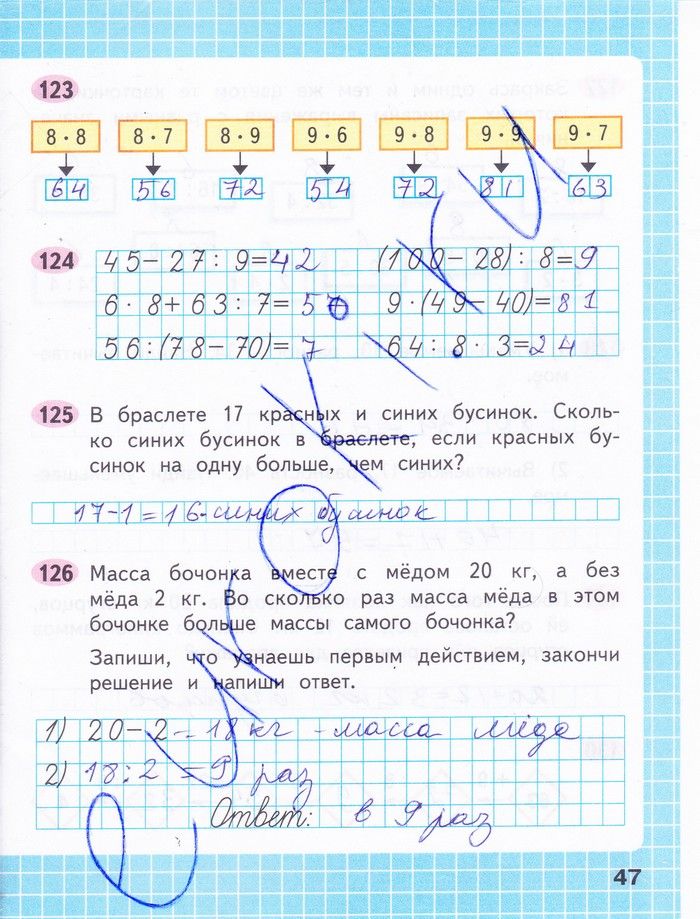 123
8 · 8 8 · 7 8 · 9 9 · 6 9 · 8 9 · 9 9 · 7
64 56 72 54 72 81 63
124 45 − 27 : 9 = 42 (100 − 28) : 8 = 9
6 · 8 + 63 : 7 = 57 9 · (49 − 40) = 81
56 : (78 − 70) = 7 64 : 8 · 3 = 24
125 В браслете 17 красных и синих бусинок. Сколь-
ко синих бусинок в браслете, если красных бу-
синок на одну больше, чем синих?
17-1=16-синих бусинок
126 Масса бочонка вместе с мёдом 20 кг, а без
мёда 2 кг. Во сколько раз масса мёда в этом
бочонке больше массы самого бочонка?
Запиши, что узнаешь первым действием, закончи
решение и напиши ответ.
1) 20 − 2 = 18 кг - масса мёда
2) 18:2 = 9 раз
Ответ: в 9 раз
47